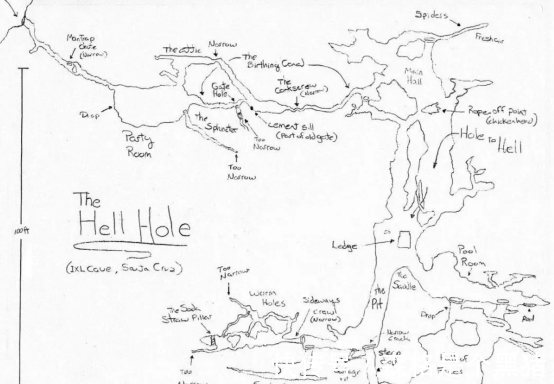 Spidels
Fresh air
Mantrap
Crate
(Narrow)
The attic
Narrow
The
Birthing Canal
Main
Hall
Gate
Hole
The
Corkscrew
(Narrow)
Rope-off point
(chickenhead)
Hole to
Hell
Drop
The
Splinter
cement sill
(Part of old gate)
Too
Narrow
Party
Room
Too
Narrow
The
Hell Hole
(IXL Cave, Santa Cruz)
100ft
Ledge
Pool
Room
The
Saddle
The
Pit
Too
Narrow
Worm
Holes
Sideways
Crawl
(Narrow)
The Soda
Straw Pillar
Drop
Pool
Narrow
Too